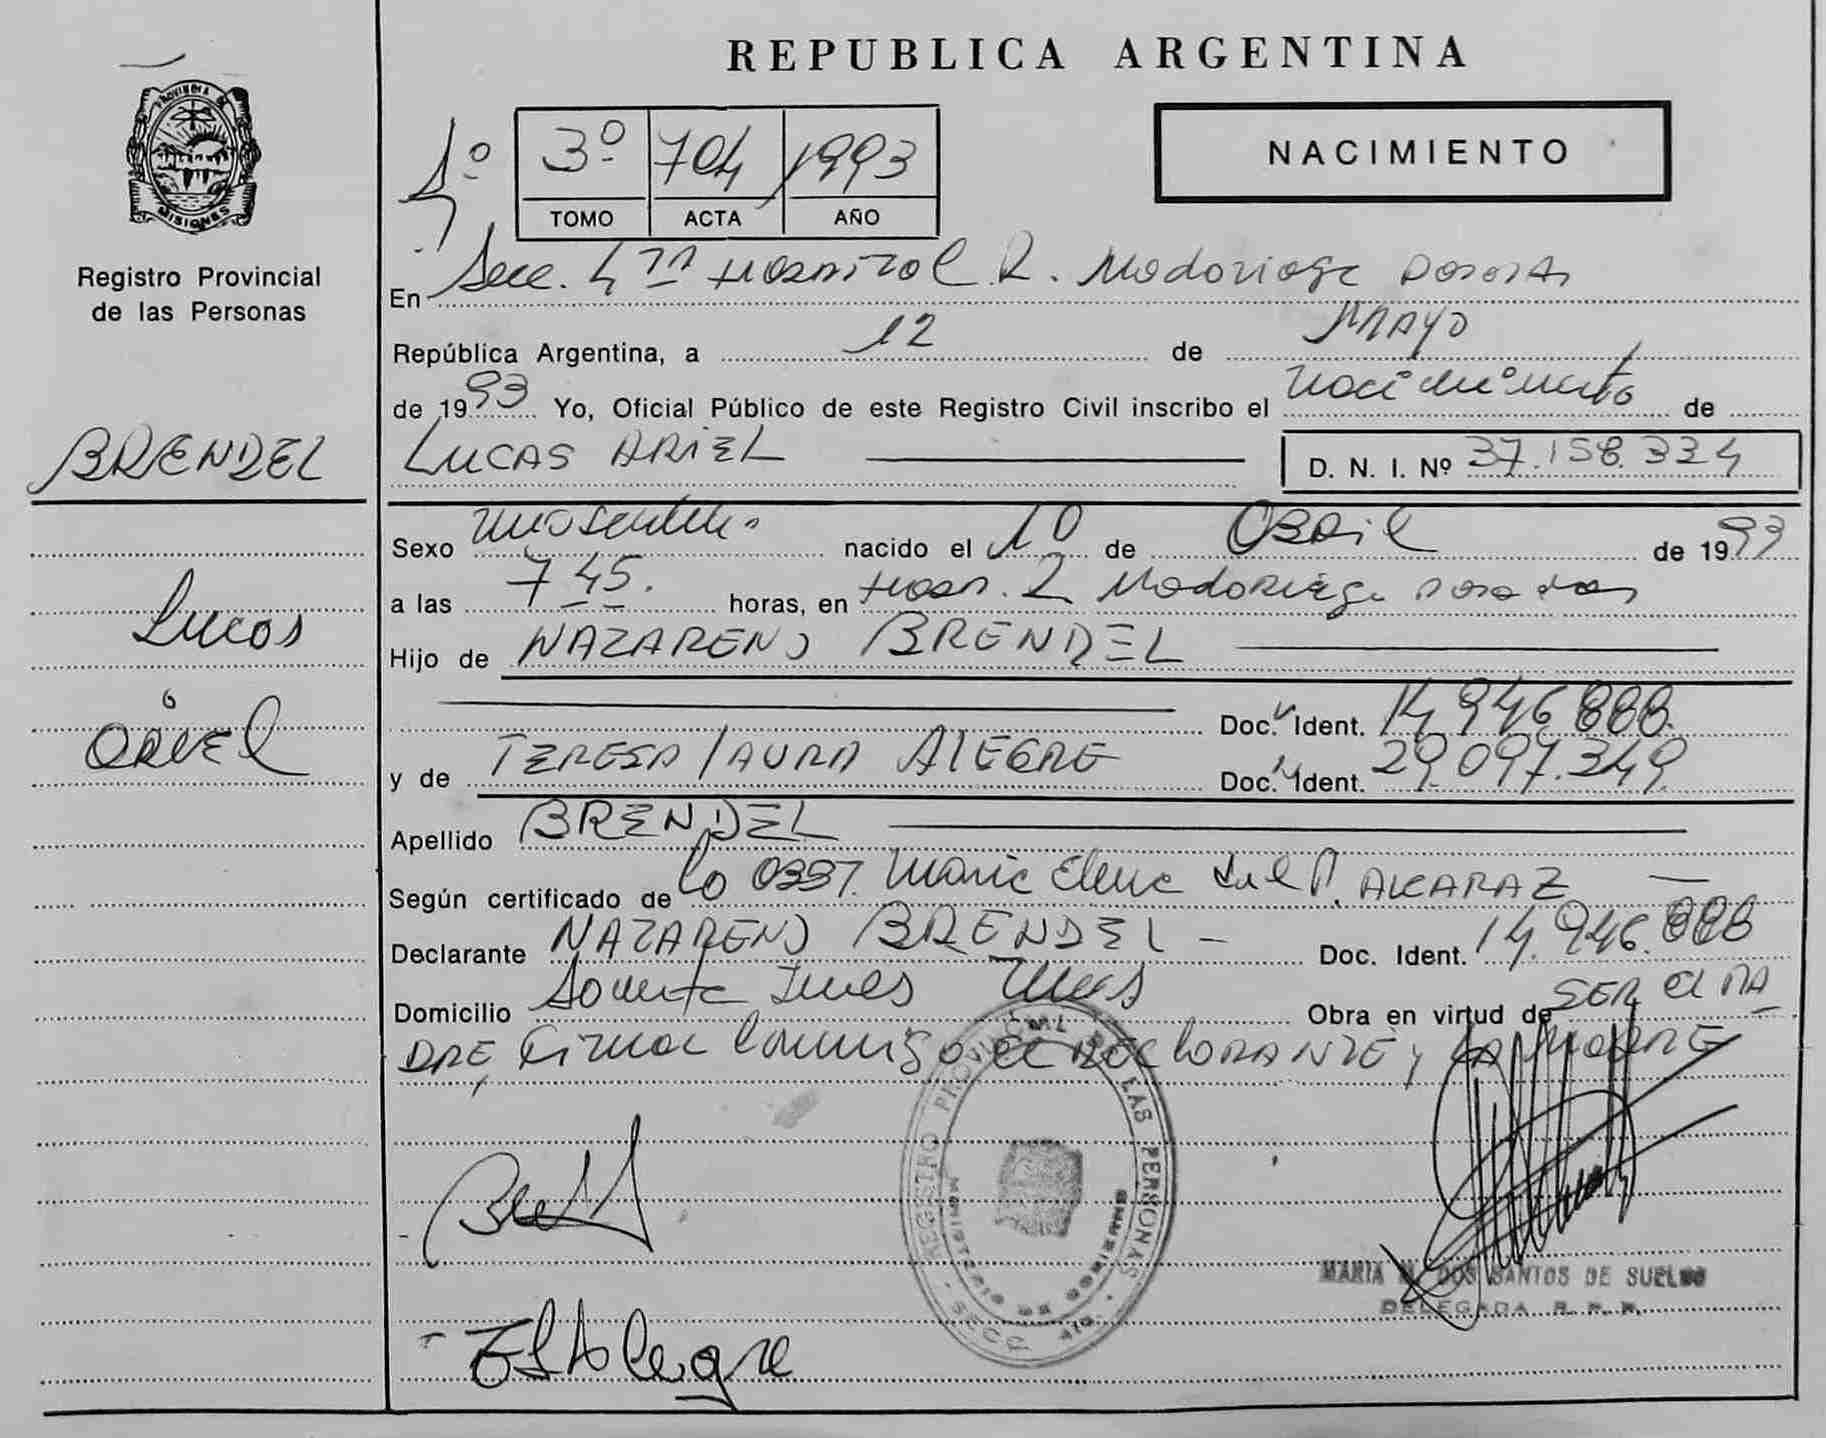 PROVINCIA DE
MISIONES
Registro Provincial
de las Personas
BRENDEL
Lucas
Ariel
REPUBLICA ARGENTINA
1º 3º 704 1993
TOMO ACTA AÑO
NACIMIENTO
En Secc. 4ta Hospital R. Madariaga Posadas
República Argentina, a 12 de MAYO
de 1993 Yo, Oficial Público de este Registro Civil inscribo el nacimiento de
LUCAS ARIEL D. N. I. Nº 37.158.334
Sexo masculino nacido el 10 de Abril de 1993
a las 7 45. horas, en Hosp. R Madariaga Posadas
Hijo de NAZARENO BRENDEL
Doc. Ident. 14.946.888.
y de TERESA LAURA ALEGRE Doc. Ident. 29.097.349.
Apellido BRENDEL
Según certificado de la Maria Elena del P. ALCARAZ
Declarante NAZARENO BRENDEL - Doc. Ident. 14.946.888
Domicilio Obra en virtud de SER el PA
DRE, Firma conmigo el DECLARANTE y LA MADRE
REGISTRO PROVINCIAL DE LAS PERSONAS
MINISTERIO DE GOBIERNO
SECC 4ta
MARIA M. DOS SANTOS DE SUELDO
DELEGADA R. P. P.
Alegre